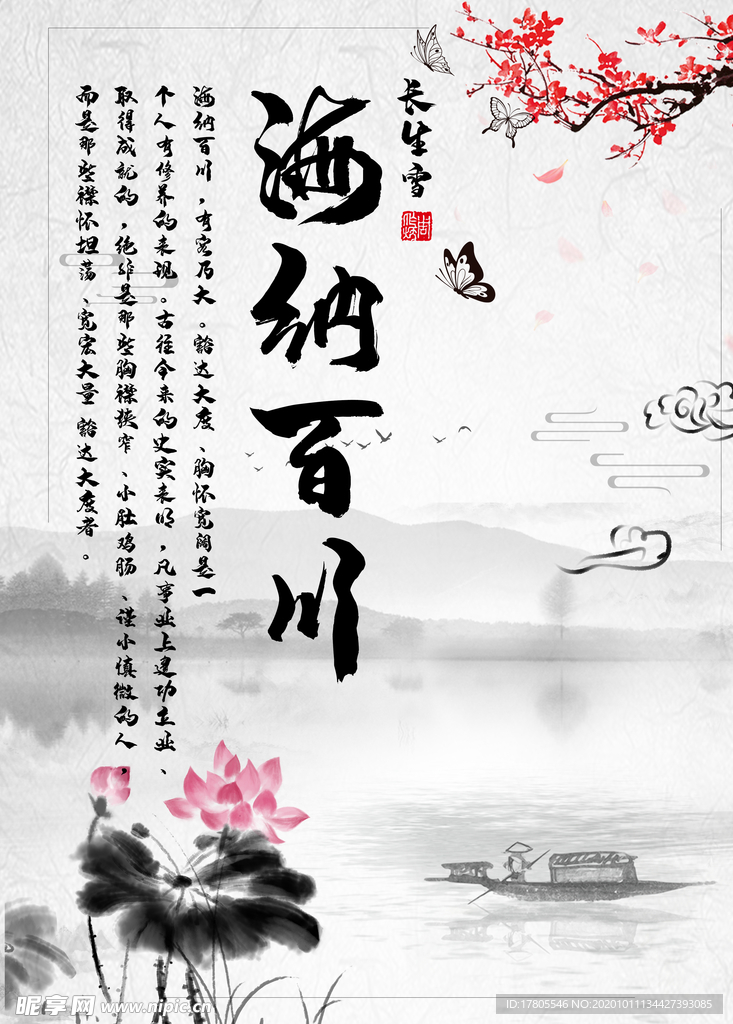 长生雪
海纳百川
海纳百川，有容乃大。豁达大度、胸怀宽阔是一
个人有修养的表现。古往今来的史实表明，凡事业上建功立业、
取得成就的，绝非是那些胸襟狭窄、小肚鸡肠、谨小慎微的人，
而是那些襟怀坦荡、宽宏大量 豁达大度者。
昵享网 www.nipic.cn
ID:17805546 NO:20201011134427393085